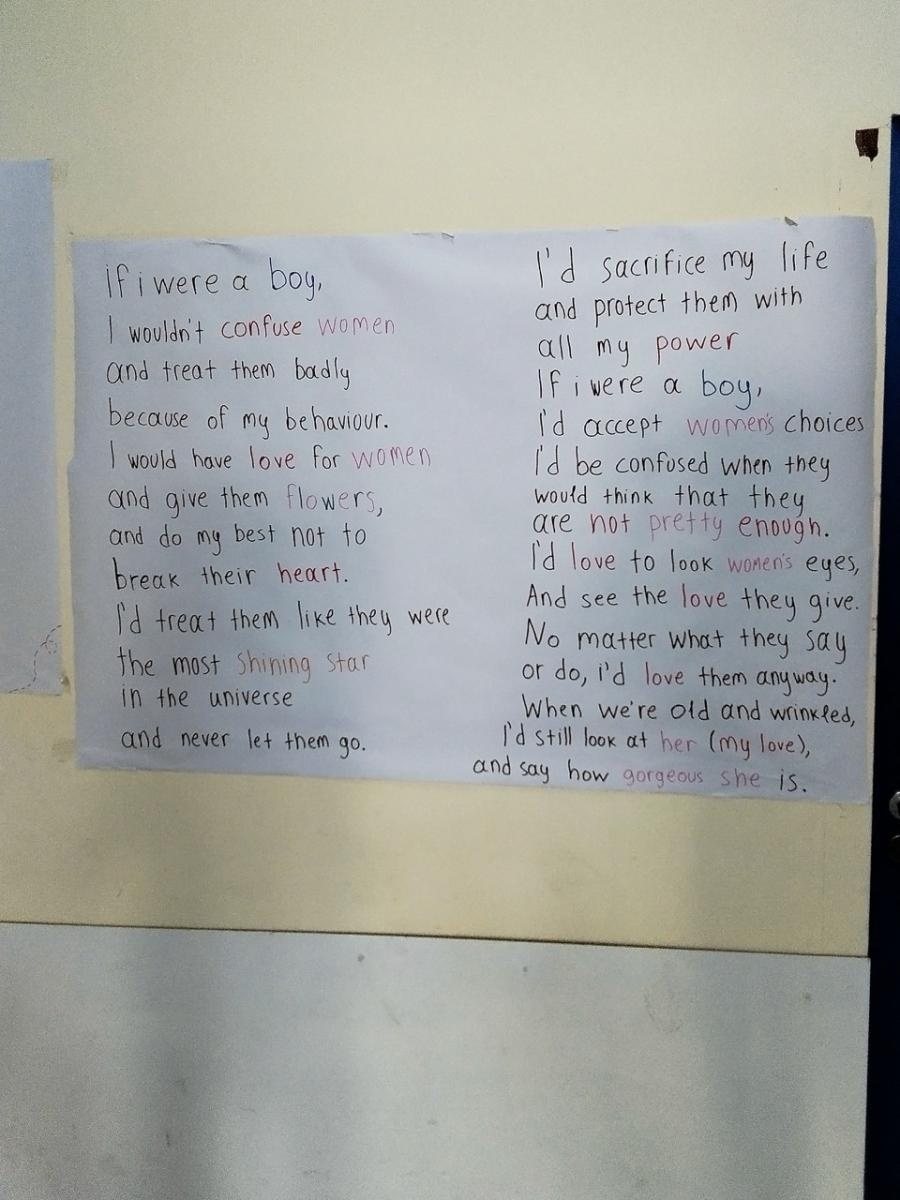 If i were a boy,
I wouldn't confuse women
and treat them badly
because of my behaviour.
I would have love for women
and give them flowers,
and do my best not to
break their heart.
I'd treat them like they were
the most shining star
in the universe
and never let them go.
I'd sacrifice my life
and protect them with
all my power
If i were a boy,
I'd accept women's choices
I'd be confused when they
would think that they
are not pretty enough.
I'd love to look women's eyes,
And see the love they give.
No matter what they say
or do, i'd love them anyway.
When we're old and wrinkled,
I'd still look at her (my love),
and say how gorgeous she is.